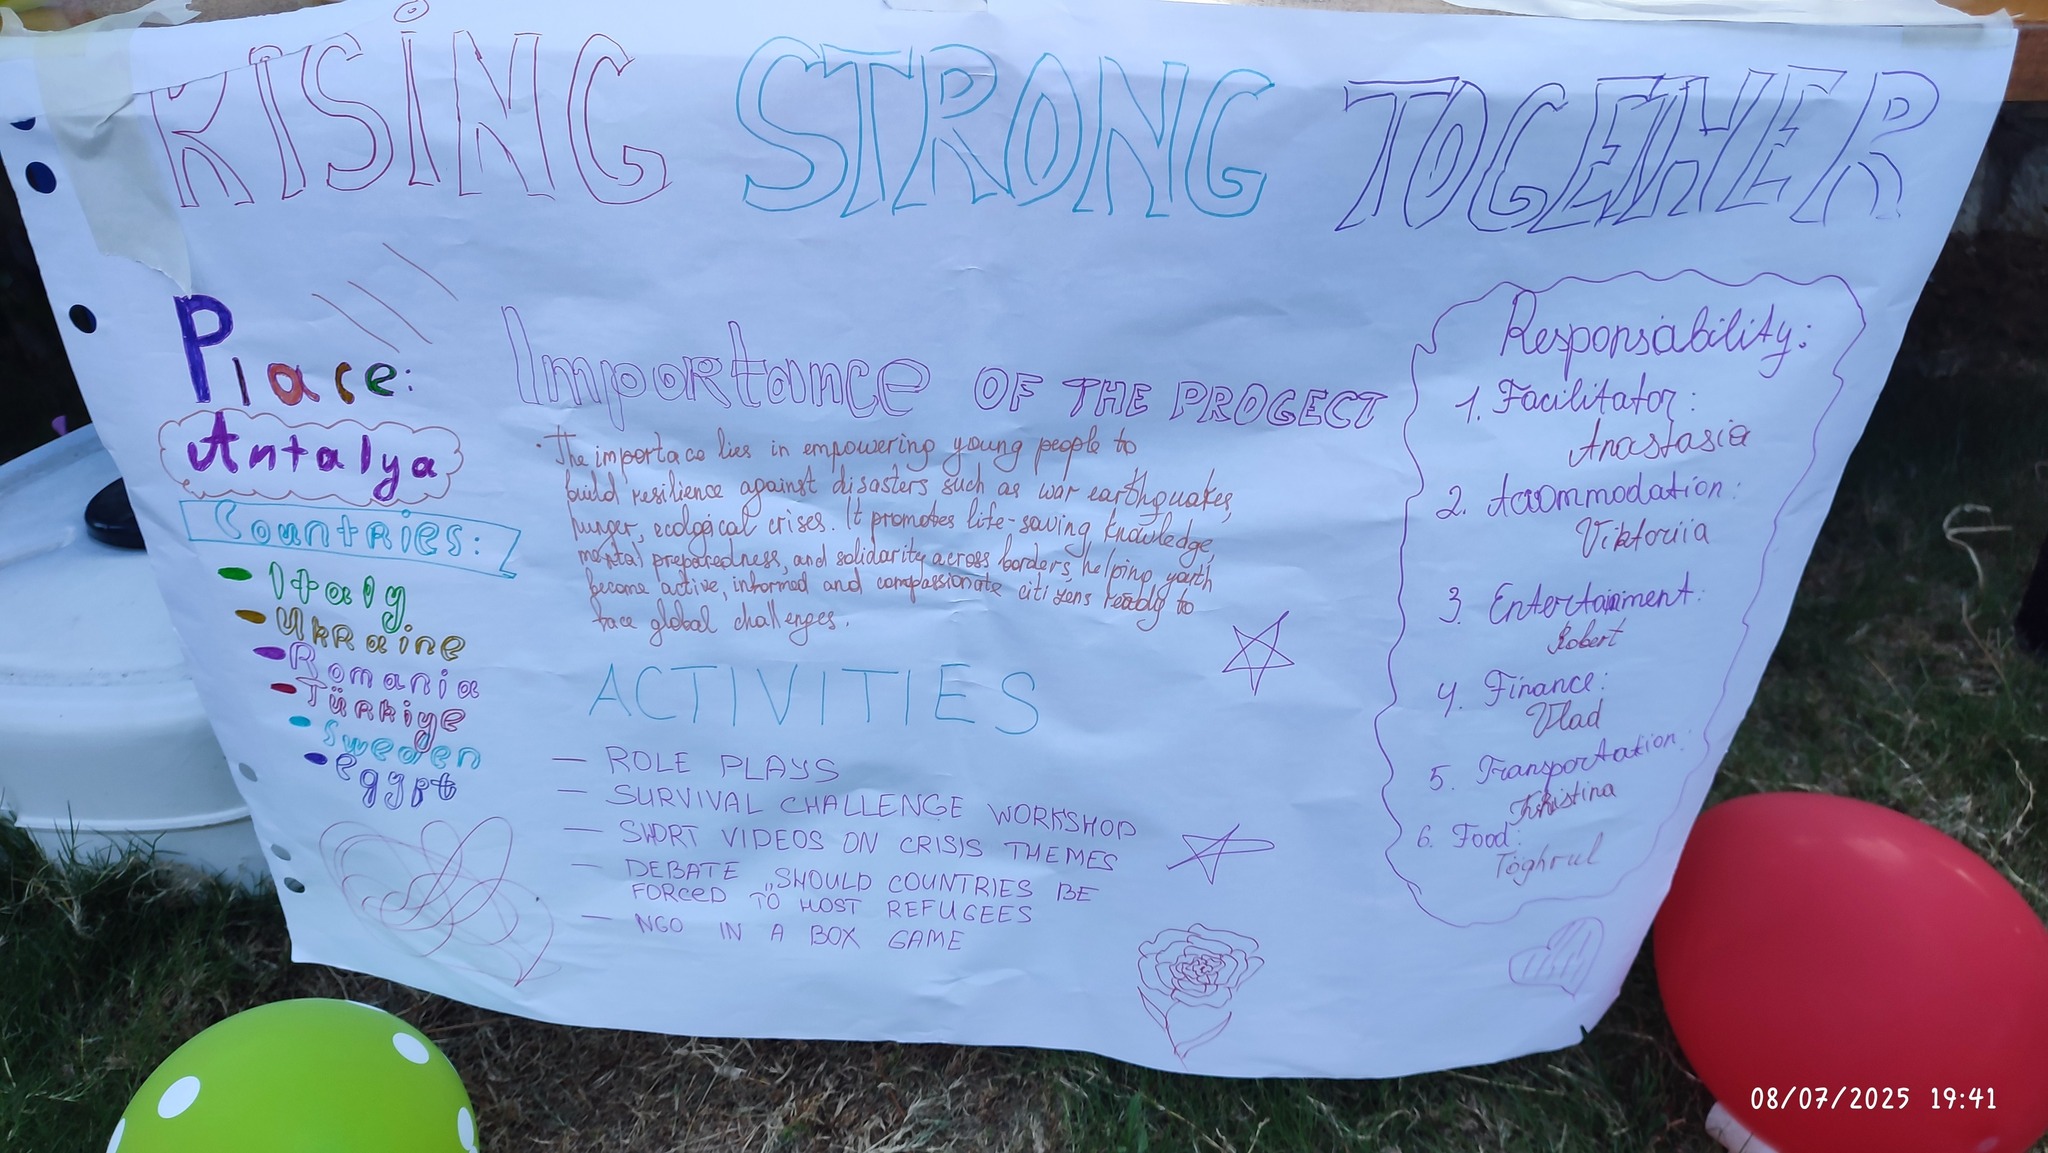 RISING STRONG TOGETHER
Place:
Antalya
Countries:
Italy
Ukraine
Romania
Türkiye
Sweden
egypt
Importance OF THE PROGECT
· The importace lies in empowering young people to
build resilience against disasters such as war earthquakes,
hunger, ecological crises. It promotes life-saving knowledge,
mental preparedness, and solidarity across borders, helping youth
become active, informed and compassionate citizens ready to
face global challenges.
ACTIVITIES
— ROLE PLAYS
— SURVIVAL CHALLENGE WORKSHOP
— SHORT VIDEOS ON CRISIS THEMES
— DEBATE „SHOULD COUNTRIES BE
FORCED TO HOST REFUGEES
— NGO IN A BOX GAME
Responsability:
1. Facilitator:
Anastasia
2. Accommodation:
Viktoriia
3. Entertainment:
Robert
4. Finance:
Vlad
5. Transportation:
Khristina
6. Food:
Toghrul
08/07/2025 19:41